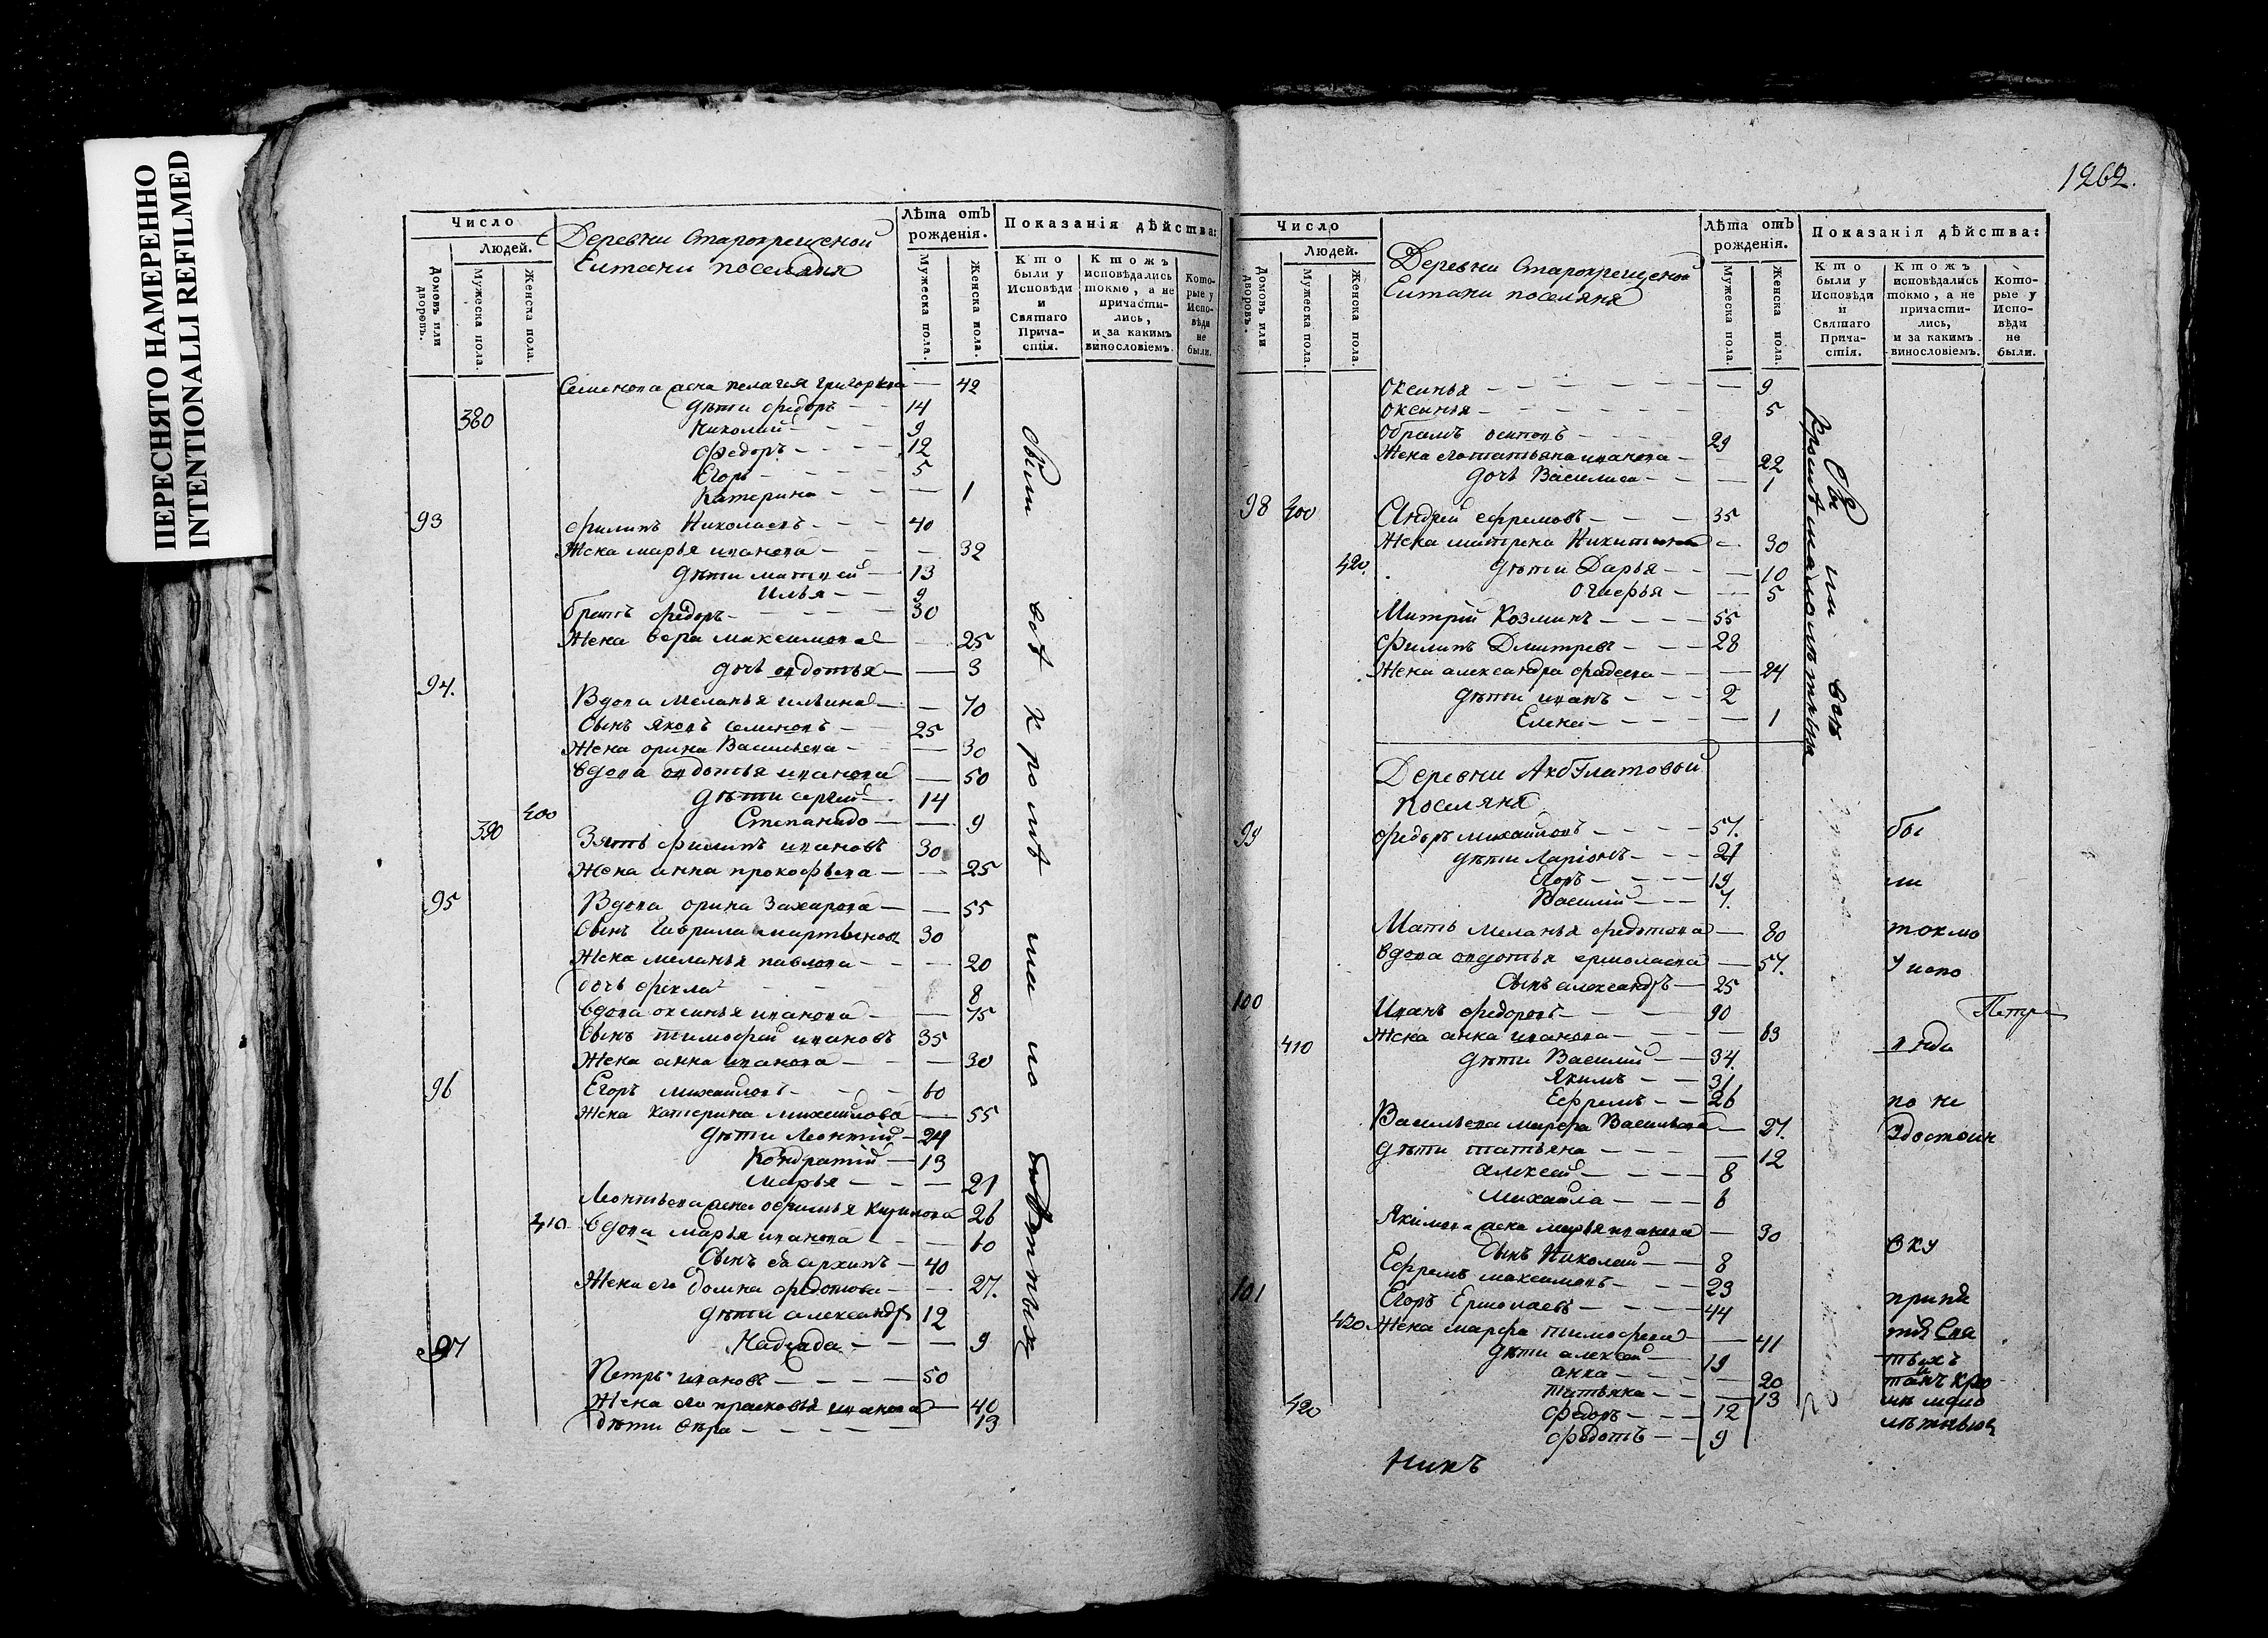 ПЕРЕСНЯТО НАМЕРЕННО
INTENTIONALLI REFILMED
Число
Людей.
Домовъ или дворовъ.
Мужеска пола.
Женска пола.
Деревни Старокрещеной
поселяня
Лѣта отъ рожденія.
Мужеска пола.
Женска пола.
Показанія дѣйства:
Кто были у Исповѣди и Святаго Прича-стія.
Ктожъ исповѣдались токмо, а не причасти-лись, и за какимъ винословіемъ.
Кото-рые у Испо-вѣди не были.
Семенова жена пелагея григорьева — 42
380 дѣти федоръ — 14
Николай — 9
Федоръ — 12
Егоръ — 5
Катерина — 1
93 филипъ Николаевъ — 40
Жена марья иванова — 32
дѣти матвей — 13
Илья — 9
братъ федоръ — 30
Жена вера максимова — 25
дочь овдотья — 3
94. Вдова меланья ильина — 70
Сынъ яковъ семеновъ — 25
Жена орина Васильева — 30
вдова овдотья иванова — 50
дѣти сергей — 14
400 Степанидо — 9
390 Зять филипъ ивановъ 30
Жена анна прокофьева — 25
95 Вдова орина Захарова — 55
Сынъ Гаврила мартыновъ 30
Жена меланья павлова — 20
дочь фекла — 8
вдова оксинья иванова — 75
Сынъ тимофей ивановъ 35
Жена анна иванова — 30
96 Егоръ михайловъ — 60
Жена катерина михайлова — 55
дѣти Леонтий — 24
Кондратий — 13
марья — 21
Леонтьева жена офимья Кирилова 26
410 вдова марья иванова — 60
Сынъ ея архипъ — 40
Жена его домна федотова — 27.
дѣти александръ 12
Надежда — 9
97
Петръ ивановъ — 50
Жена его прасковья иванова — 40
дѣти вѣра — 13
были всѣ кромѣ мало лѣтныхъ
1262.
Число
Людей.
Домовъ или дворовъ.
Мужеска пола.
Женска пола.
Деревни Старокрещеной
поселяня
Лѣта отъ рожденія.
Мужеска пола.
Женска пола.
Показанія дѣйства:
Кто были у Исповѣди и Святаго Прича-стія.
Ктожъ исповѣдались токмо, а не причасти-лись, и за какимъ винословіемъ.
Кото-рые у Испо-вѣди не были.
Оксинья — 9
Оксинья — 5
Обрамъ осиповъ — 29
Жена его татьяна иванова — 22
дочь Василиса — 1
98 400 Андрей ефремовъ — 35
Жена матрена Никитина — 30
420. дѣти Дарья — 10
Огнефья — 5
Митрий Козминъ — 55
Филипъ Дмитревъ — 28
Жена александра фадеева — 24
дѣти иванъ — 2
Елена — 1
были всѣ
кромѣ малолѣтныхъ
Деревни
поселяня
99 федоръ михайловъ — 57.
дѣти ларіонъ — 21
Егоръ — 19
Василий — 7.
Мать меланья федотова — 80
вдова овдотья ермолаева — 57.
Сынъ александръ — 25
100 Иванъ федоровъ — 90
Жена анна иванова — 63
410 дѣти Василий — 34.
Якимъ — 31
Ефремъ — 26
Васильева марфа Васильева — 27.
дѣти татьяна — 12
алексей — 8
михайла — 6
Якимова жена марья иванова — 30
Сынъ Николай — 8
Ефремъ максимовъ — 23
101 Егоръ Ермолаевъ — 44
430 Жена марфа тимофеева — 41
дѣти алексей — 19
анна — 20
татьяна — 13
420 федоръ — 12
федотъ — 9
бы
ли
токмо
у испо
вѣди
Петръ
но не
Удостои
вку
приня
тія Свя
тыхъ
таинъ кро
мѣ мало
лѣтныхъ
никъ